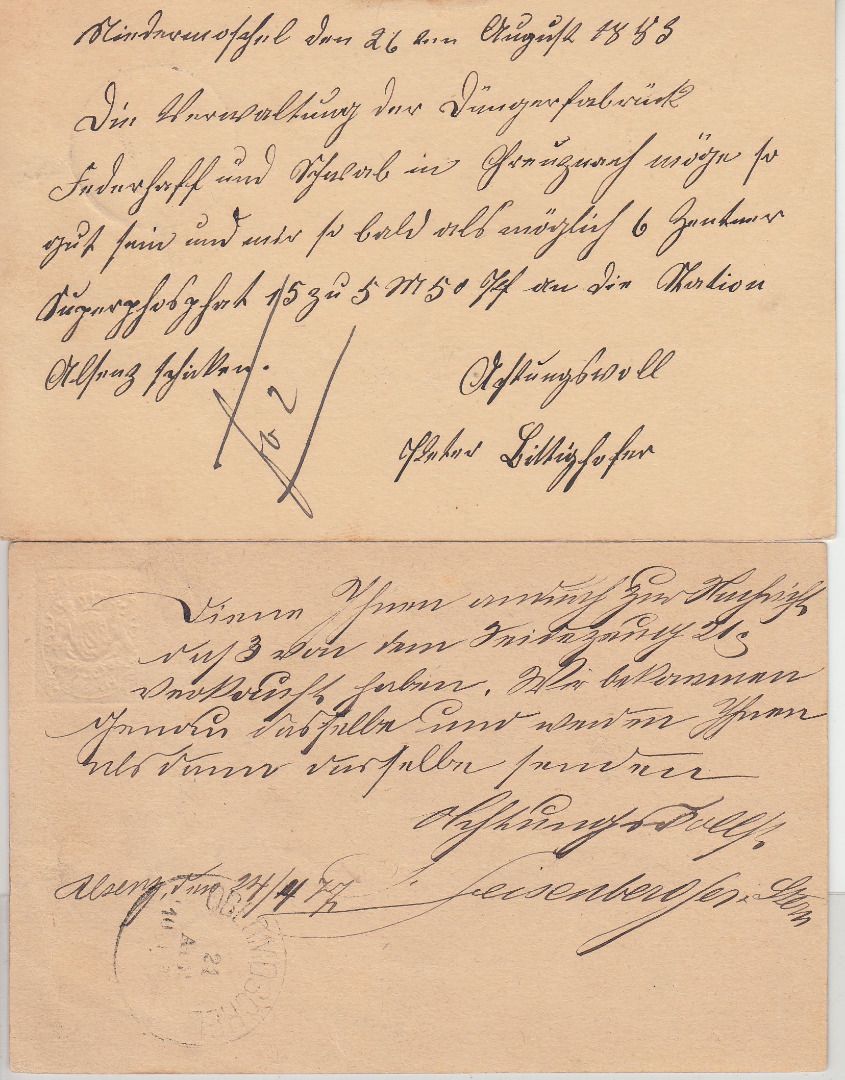 Niedermoschel den 26ten August 1883
Die Verwaltung der Düngerfabrück
Federhaff und Schwab in Creuznach möge so
gut sein und mir so bald als möglich 6 Zentner
Superphosphat 15 zu 5 M 50 Pf an die Station
Alsenz schicken.
Achtungsvoll
Peter Bittighofer
Diene Ihnen andurch zur Nachricht
daß von dem Seidezeug
verkauft haben. Wir bekommen
genau dasselbe und werden Ihnen
alsdann dasselbe senden
Achtungsvollst
Alsenz, den 24/4 77